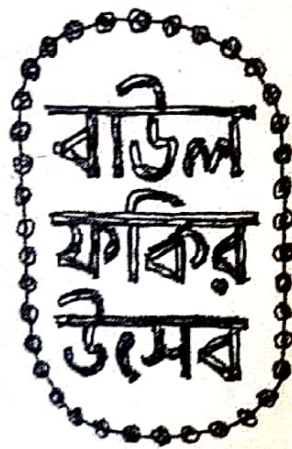 বাউল
ফকির
উৎসব